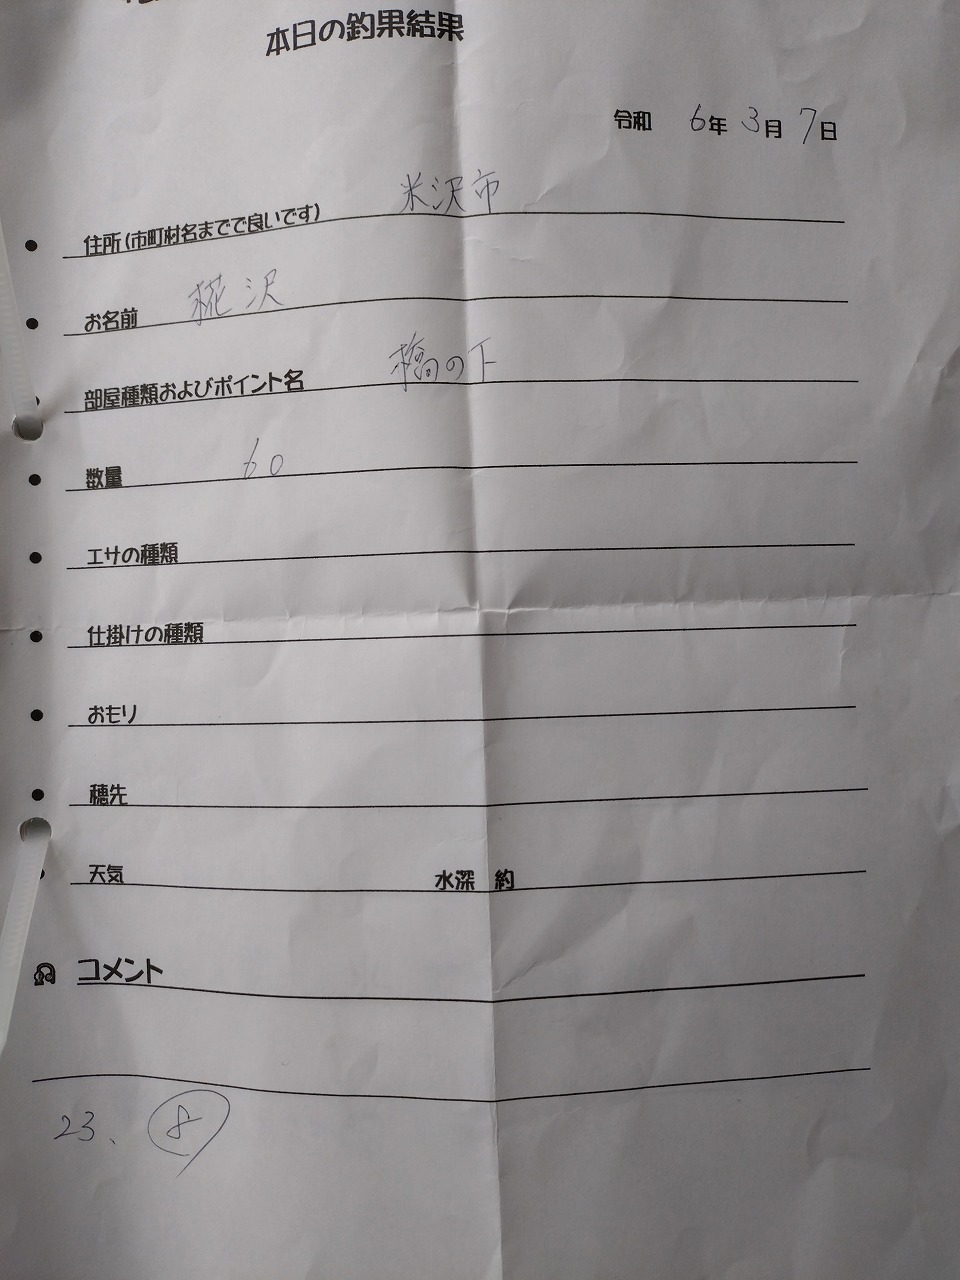 本日の釣果結果
令和 6年 3月 7日
住所(市町村名までで良いです) 米沢市
お名前 糀沢
部屋種類およびポイント名 橋の下
数量 60
エサの種類
仕掛けの種類
おもり
穂先
天気 水深 約
コメント
23、 8